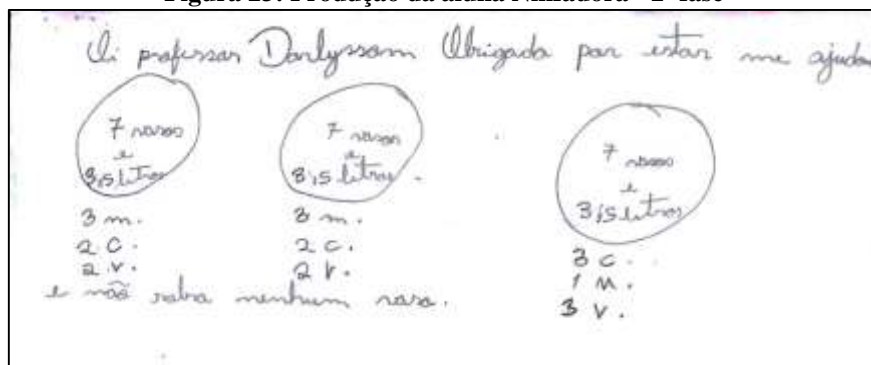 Figura 25: Produção da aluna Nilmadora - 2ª fase
Oi professor Darlyssom Obrigada por estar me ajudan
7 vasos
e
3,5 litros
3 m.
2 C.
2 V.
7 vasos
e
3,5 litros.
3 m.
2 C.
2 V.
7 vasos
e
3,5 litros
3 C.
1 M.
3 V.
e não sobra nenhum vaso.